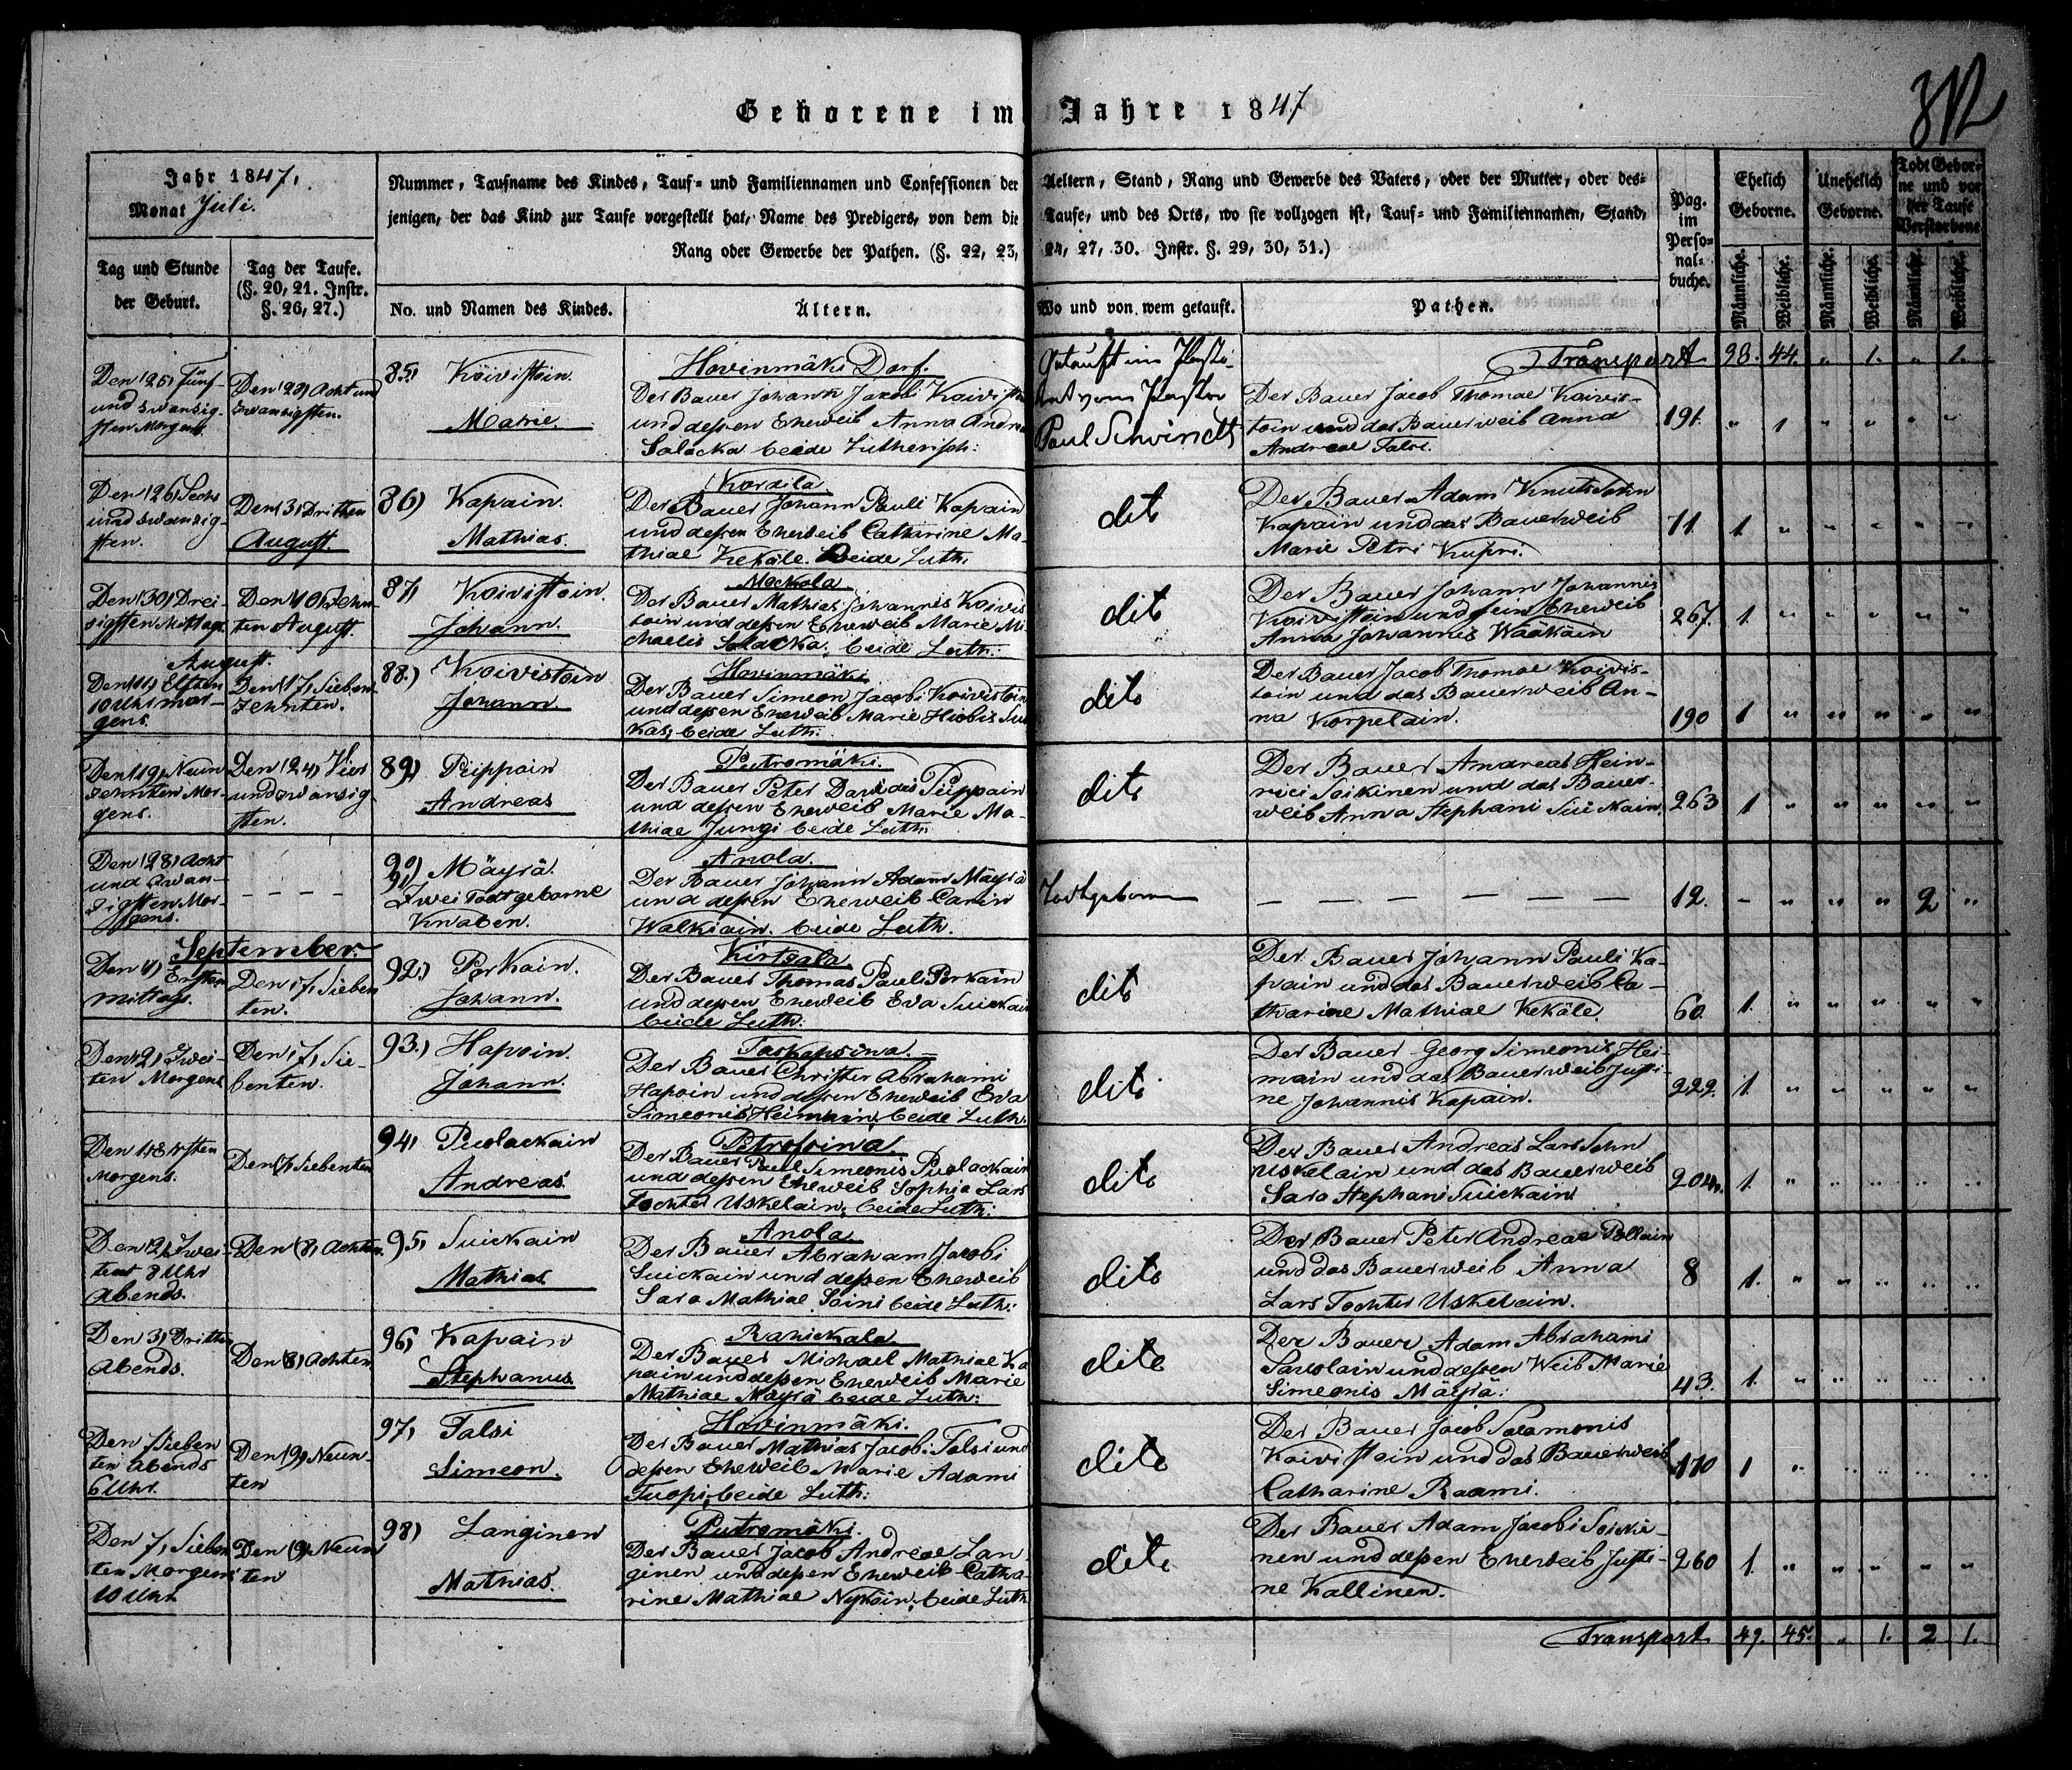 Geborene im Jahre 1847
312
Jahr 1847.
Monat Juli.
Nummer, Taufname des Kindes, Tauf- und Familiennamen und Confessionen der Aeltern, Stand, Rang und Gewerbe des Vaters, oder der Mutter, oder des-
jenigen, der das Kind zur Taufe vorgestellt hat, Name des Predigers, von dem die Taufe, und des Orts, wo sie vollzogen ist, Tauf- und Familiennamen, Stand,
Rang oder Gewerbe der Pathen. (§. 22, 23, 24, 27, 30. Instr. §. 29, 30, 31.)
Pag. im Perso- nal- buche.
Ehelich Geborne.
Unehelich Geborne.
Todt Gebor- ne und vor der Taufe Verstorbene
Tag und Stunde der Geburt.
Tag der Taufe. (§. 20, 21. Instr. §. 26, 27.)
No. und Namen des Kindes.
Ältern.
Wo und von wem getauft.
Pathen.
Männliche. Weibliche. Männliche. Weibliche. Männliche. Weibliche.
Transport 44. „ 1. „ 1.
Den (25) Fünf-
und zwanzig-
sten Morgens.
Den (28) Acht und
zwanzigsten.
85) Koivistoin.
Marie.
Hovinmäki Dorf.
Der Bauer Johann Jacobi Koivistoin
und dessen Eheweib Anna Andreae
Solacka beide Lutherisch:
Getauft im Pasto-
rat vom Pastor
Paul Schvindt
Der Bauer Jacob Thomae Koivis-
toin und das Bauerweib Anna
Andreae Talsi.
191. „ 1 „ „ „ „
Den (26) Sechs
und zwanzig-
sten.
Den (3) Dritten
August.
86) Kapain.
Mathias.
Kordila
Der Bauer Johann Pauli Kapain
und dessen Eheweib Catharine Ma-
thiae Kekäle. beide Luth.
dito
Der Bauer Adam Knuts Sohn
Kapain und das Bauerweib
Marie Petri Kupri.
71. 1. „ „ „ „ „
Den (30) Drei-
sigsten Mittags.
Den (10) Zehn-
ten August.
87) Koivistoin.
Johann.
Mockola
Der Bauer Mathias Johannis Koivis-
toin und dessen Eheweib Marie Mi-
chaelis Solacka; beide Luth:
dito
Der Bauer Johann Johannis
Koivistoin und sein Eheweib
Anna Johannis Wääkäin
267. 1. „ „ „ „ „
August.
Den (11) Elften
10 Uhr mor-
gens.
Den (17) Sieben-
zehnten.
88.) Koivistoin
Johann
Hovinmäki
Der Bauer Simeon Jacobi Koivistoin
und dessen Eheweib Marie Hiobis Suc-
kas; beide Luth:
dito
Der Bauer Jacob Thomae Koivis-
toin und das Bauerweib An-
na Korpelain.
190 1 „ „ „ „ „
Den (19) Neun
zehnten Mor-
gens.
Den (24) Vier
und zwanzig-
sten.
89) Piippoin
Andreas
Putromäki.
Der Bauer Peter Davidis Piippoin
und dessen Eheweib Marie Ma-
thiae Jungi beide Luth:
dito
Der Bauer Andreas Hein-
rici Soikinen und das Bauer-
weib Anna Stephani Suickain.
263 1 „ „ „ „ „
Den (28) Acht
und zwan-
zigsten Mor-
gens.
– – – –
90)
91) Mäyrä.
Zwei Todtgeborne
Knaben.
Anola.
Der Bauer Johann Adam Mäyrä
und dessen Eheweib Carin
Walkiain. beide Luth.
Todtgeboren
– – – – – – –
12. – „ „ „ 2 „
September.
Den (1) Ersten
mittags.
Den (7) Sieben
ten.
92.) Porkain.
Johann.
Kirtsala
Der Bauer Thomas Pauli Porkain
und dessen Eheweib Eva Suickain
beide Luth:
dito
Der Bauer Johann Pauli Ka-
pain und das Bauerweib Ca-
tharine Mathiae Kekäle.
60. 1. „ „ „ „ „
Den (2) Zwei-
ten Morgens
Den (7) Sie-
benten.
93.) Hapoin.
Johann.
Taskapoiwa.
Der Bauer Christer Abrahami
Hapoin und dessen Eheweib Eva
Simeonis Heimain, beide Luth.
dito
Der Bauer Georg Simeonis Hei-
main und das Bauerweib Justi-
ne Johannis Kapain.
222. 1 „ „ „ „ „
Den (1) Ersten
Morgens.
Den (7) Siebenten
94) Puolackain
Andreas.
Petroseiwa.
Der Bauer Paul Simeonis Puolackain
und dessen Eheweib Sophia Lars
Tochter Uskelain; beide Luth:
dito
Der Bauer Andreas Lars Sohn
Uskelain und das Bauerweib
Sara Stephani Suickain
204. 1. „ „ „ „ „
Den (2) Zwei-
ten 8 Uhr
Abends.
Den (8) Achten.
95) Suickain
Mathias
Anola
Der Bauer Abraham Jacobi
Suickain und dessen Eheweib
Sara Mathiae Soini beide Luth:
dito
Der Bauer Peter Andreae Pollain
und das Bauerweib Anna
Lars Tochter Uskelain.
8 1. „ „ „ „ „
Den 3) Dritten
Abends.
Den (8) Achten
96) Kapain
Stephanus
Ranickala
Der Bauer Michael Mathiae Ka-
pain und dessen Eheweib Marie
Mathiae Mäyrä beide Luth:
dito
Der Bauer Adam Abrahami
Savolain und dessen Weib Marie
Simeonis Mäyrä:
43. 1. „ „ „ „ „
Den 7) Sieben
ten Abends
6 Uhr.
Den (9) Neun-
ten
97) Talsi
Simeon.
Hovinmäki.
Der Bauer Mathias Jacobi Talsi und
dessen Eheweib Marie Adami
Tuopi; beide Luth:
dito
Der Bauer Jacob Salamonis
Koivistoin und das Bauerweib
Catharine Raami.
170 1 „ „ „ „ „
Den 7) Sieben
ten Morgens
10 Uhr
Den (9) Neun
ten
98) Langinen
Mathias.
Putromäki.
Der Bauer Jacob Andreae Lan-
ginen und dessen Eheweib Catha-
rine Mathiae Nyköin; beide Luth
dito
Der Bauer Adam Jacobi Soicki-
nen und dessen Eheweib Justi-
ne Kallinen.
260 1. „ „ „ „ „
Transport 49. 45. „ 1. 2 1.